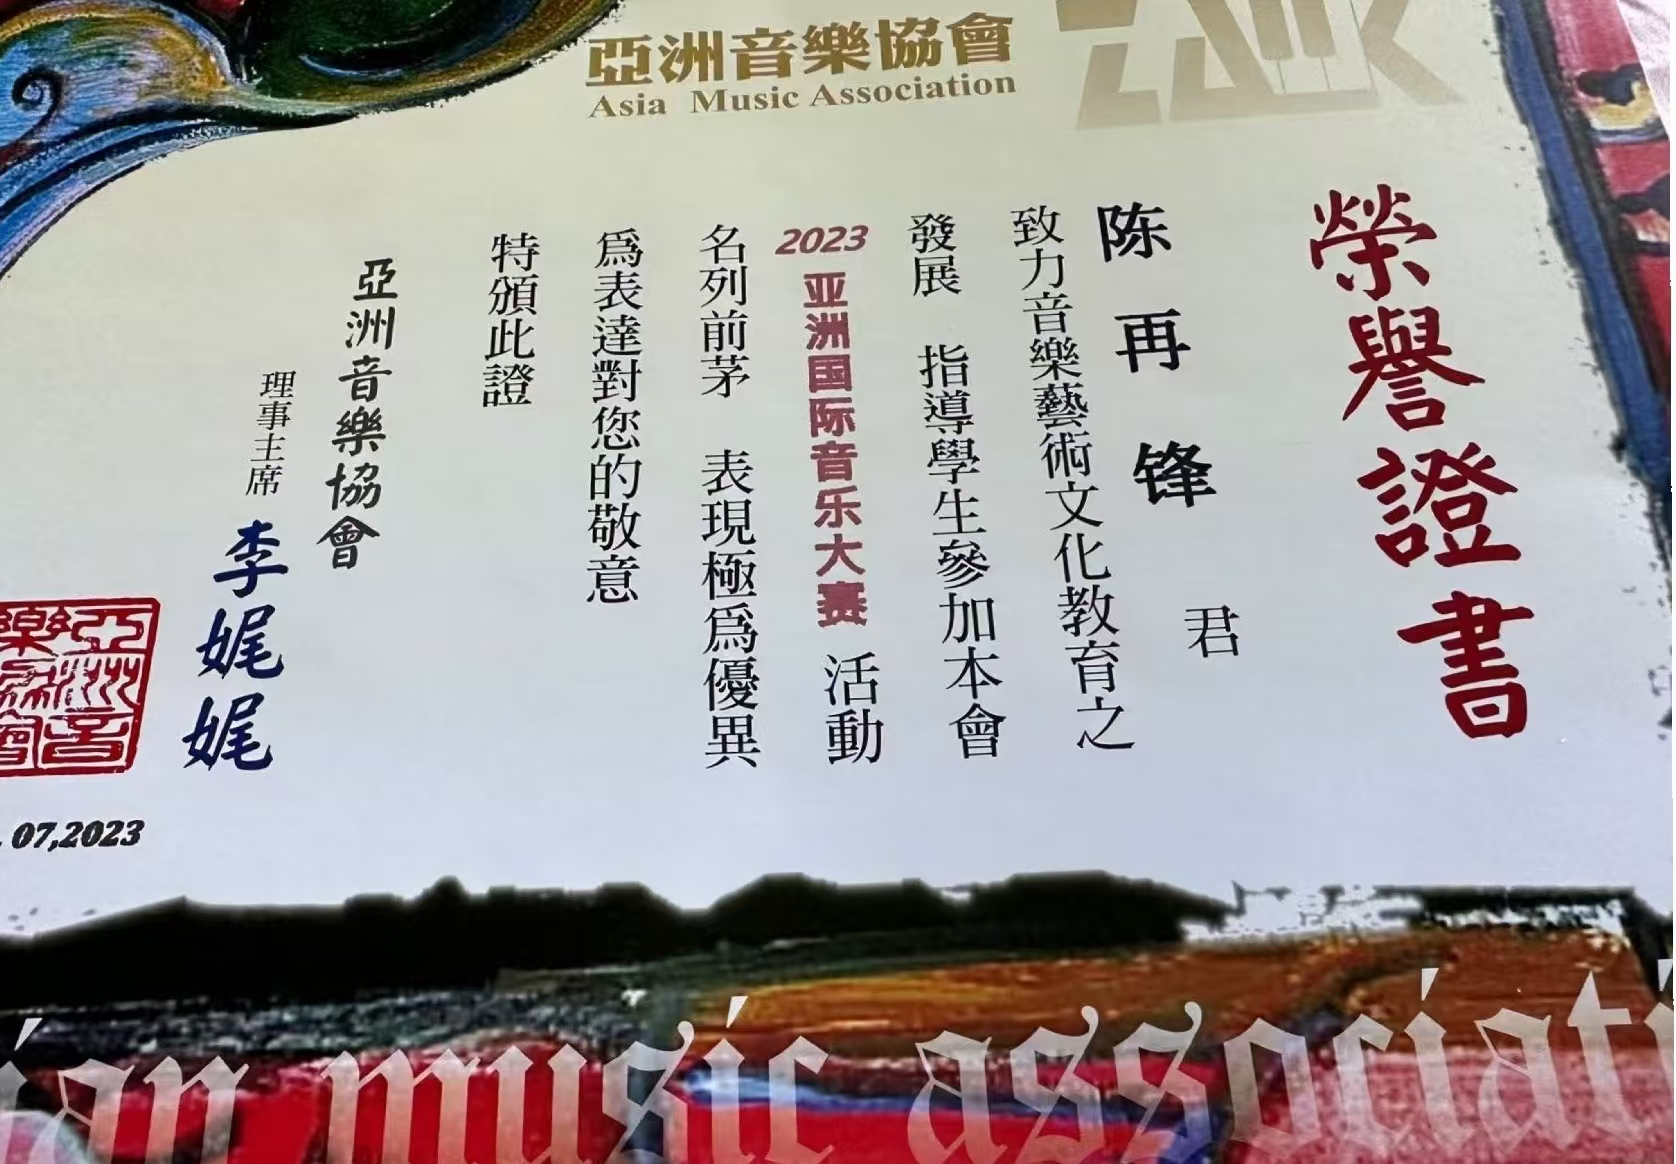 亞洲音樂協會
Asia Music Association
榮譽證書
陈再锋 君
致力音樂藝術文化教育之
發展 指導學生參加本會
2023 亚洲国际音乐大赛 活動
名列前茅 表現極爲優異
爲表達對您的敬意
特頒此證
亞洲音樂協會
理事主席 李娓娓
亞洲音
樂協會
07,2023
ian music associati